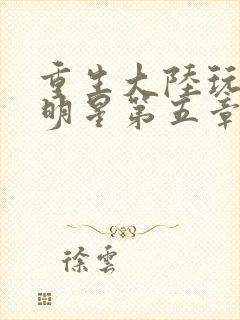 重生大陸玩
明星第五章
徐雲